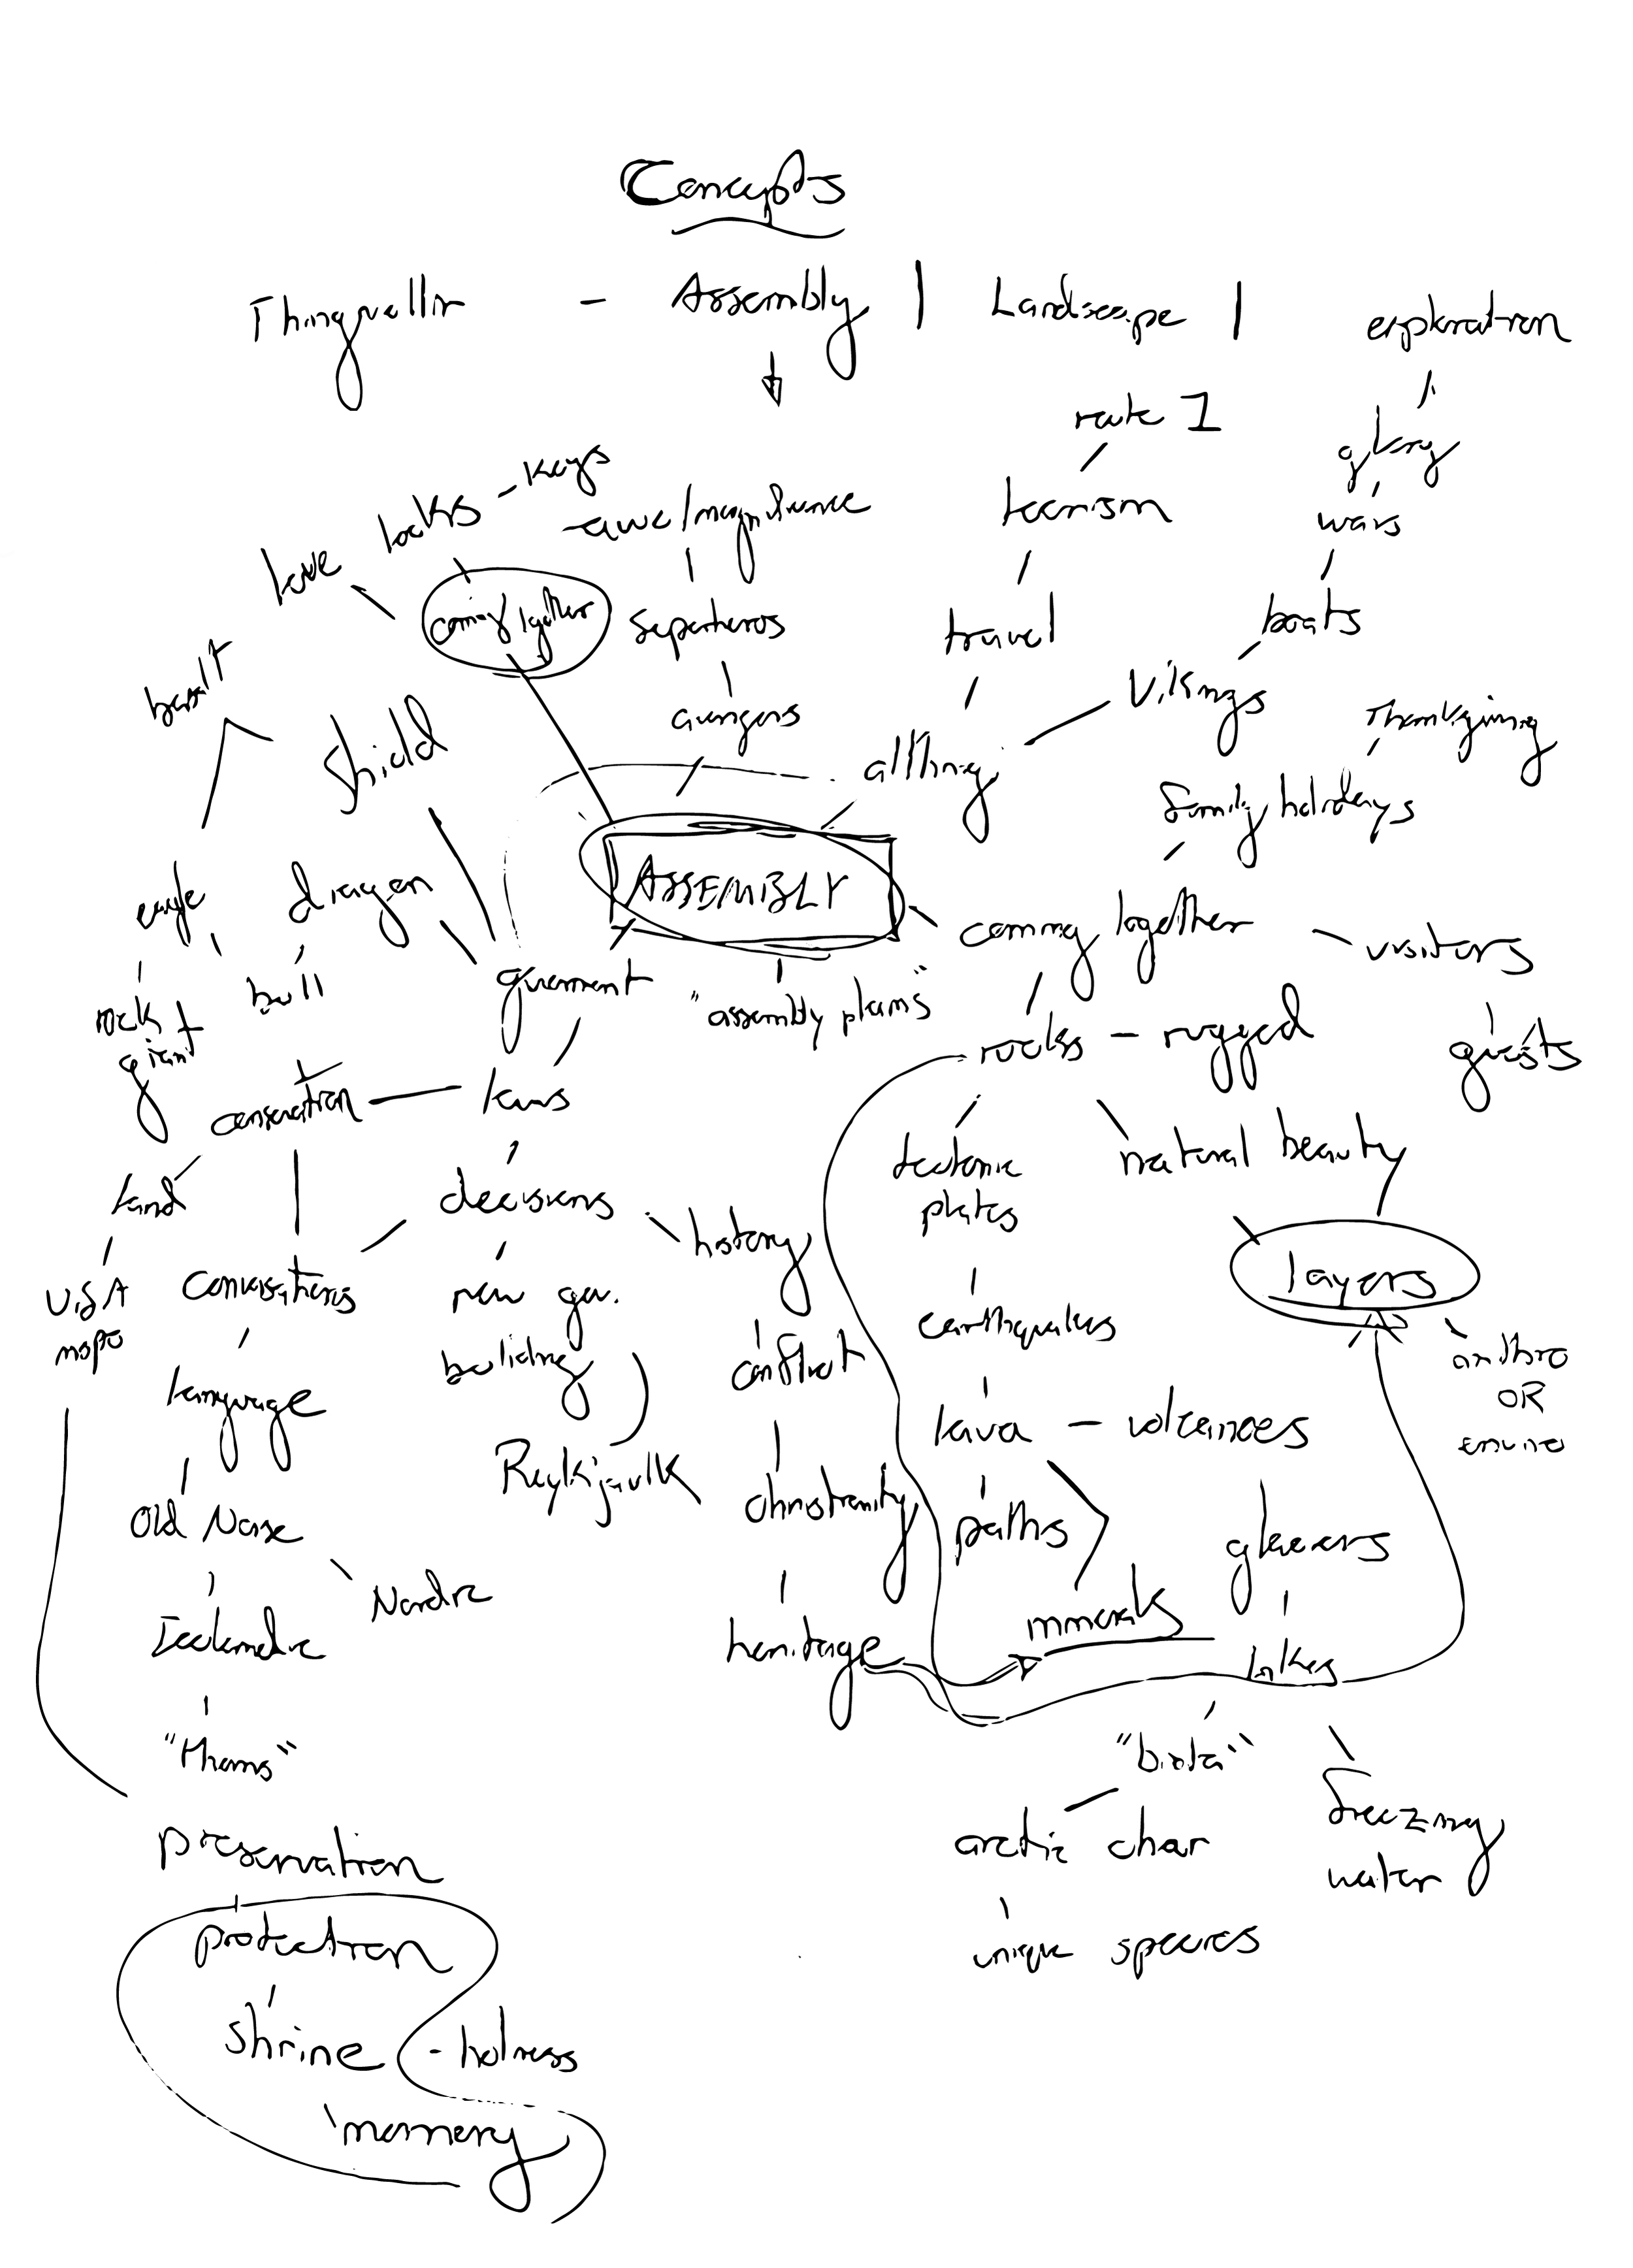 Concepts
Thingvellir - Assembly | Landscape | exploration
route 1
glory
love locks - keys
awe/magnificence
tourism
wars
coming together
superheros
travel
boats
basalt
shield
avengers
allthing
Vikings
Thanksgiving
family holidays
eagle
dragon
ASSEMBLY
coming together
visitors
rock
giant
bull
"assembly plains"
rocks - rugged
guests
conservation
laws
tectonic
plates
natural beauty
land
decisions
history
layers
USA
Conversations
new gov.
building
earthquakes
conflict
anthro
OR
enviro
language
Reykjavik
lava - volcanoes
Old Norse
christianity
paths
glaciers
Nordic
Icelandic
heritage
minerals
lakes
"biota"
freezing
water
preservation
arctic char
protection
unique species
shrine - holiness
memory